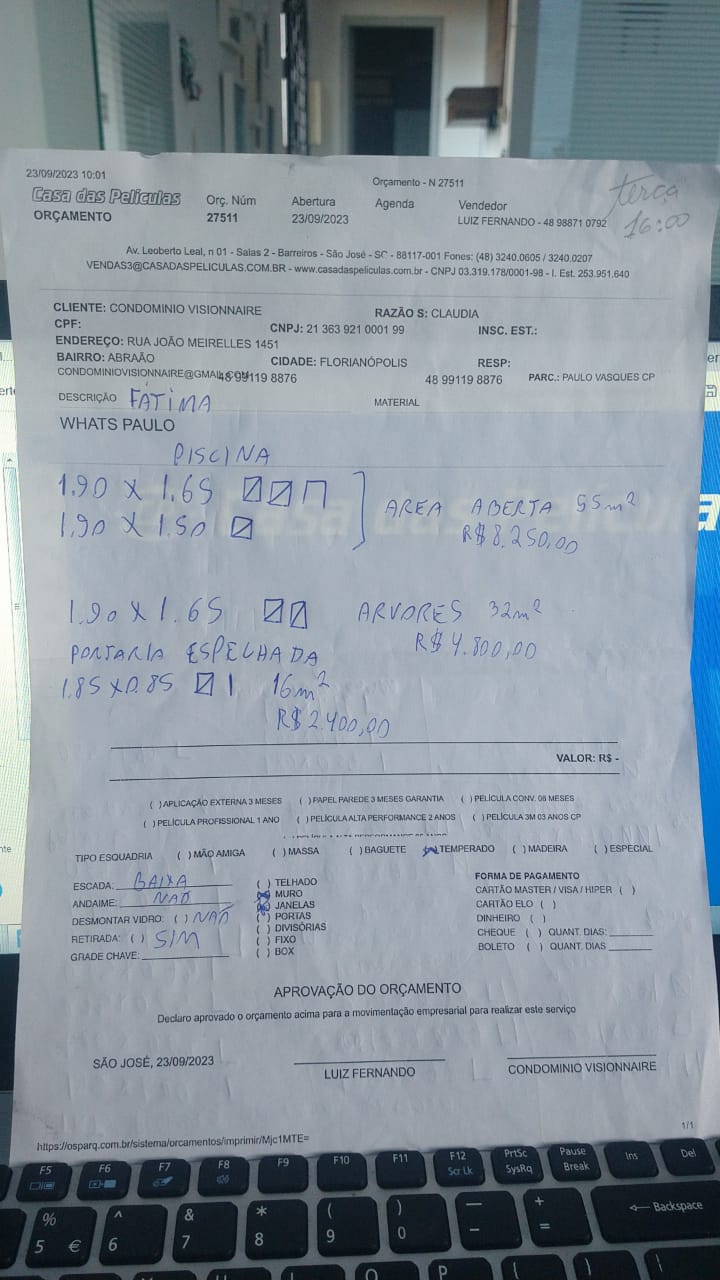 23/09/2023 10:01
Orçamento - N 27511
terça
16:00
Casa das Películas
ORÇAMENTO
Orç. Núm
27511
Abertura
23/09/2023
Agenda
Vendedor
LUIZ FERNANDO - 48 98871 0792
Av. Leoberto Leal, n 01 - Salas 2 - Barreiros - São José - SC - 88117-001 Fones: (48) 3240.0605 / 3240.0207
VENDAS3@CASADASPELICULAS.COM.BR - www.casadaspeliculas.com.br - CNPJ 03.319.178/0001-98 - I. Est. 253.951.640
CLIENTE: CONDOMINIO VISIONNAIRE RAZÃO S: CLAUDIA
CPF: CNPJ: 21 363 921 0001 99 INSC. EST.:
ENDEREÇO: RUA JOÃO MEIRELLES 1451
BAIRRO: ABRAÃO CIDADE: FLORIANÓPOLIS RESP:
CONDOMINIOVISIONNAIRE@GMAIL.COM 48 99119 8876 48 99119 8876 PARC.: PAULO VASQUES CP
DESCRIÇÃO FÁTIMA MATERIAL
WHATS PAULO
PISCINA
1.90 X 1.65 AREA ABERTA 55m²
1,90 X 1.50 R$ 8.250,00
1.90 X 1.65 ARVORES 32m²
R$ 4.800,00
PORTARIA ESPELHADA
1.85 X 0.85 16m²
R$ 2.400,00
VALOR: R$ -
( ) APLICAÇÃO EXTERNA 3 MESES ( ) PAPEL PAREDE 3 MESES GARANTIA ( ) PELÍCULA CONV. 06 MESES
( ) PELÍCULA PROFISSIONAL 1 ANO ( ) PELÍCULA ALTA PERFORMANCE 2 ANOS ( ) PELÍCULA 3M 03 ANOS CP
TIPO ESQUADRIA ( ) MÃO AMIGA ( ) MASSA ( ) BAGUETE (X) TEMPERADO ( ) MADEIRA ( ) ESPECIAL
ESCADA: BAIXA
ANDAIME: NAÕ
DESMONTAR VIDRO: ( ) NAÕ
RETIRADA: ( ) SIM
GRADE CHAVE:
( ) TELHADO
(X) MURO
(X) JANELAS
(X) PORTAS
( ) DIVISÓRIAS
( ) FIXO
( ) BOX
FORMA DE PAGAMENTO
CARTÃO MASTER / VISA / HIPER ( )
CARTÃO ELO ( )
DINHEIRO ( )
CHEQUE ( ) QUANT. DIAS:
BOLETO ( ) QUANT. DIAS
APROVAÇÃO DO ORÇAMENTO
Declaro aprovado o orçamento acima para a movimentação empresarial para realizar este serviço
SÃO JOSÉ, 23/09/2023
LUIZ FERNANDO
CONDOMINIO VISIONNAIRE
1/1
https://osparq.com.br/sistema/orcamentos/imprimir/Mjc1MTE=
F5 F6 F7 F8 F9 F10 F11 F12 Scr Lk PrtSc SysRq Pause Break Ins Del
% 5 € ^ 6 & 7 * 8 ( 9 ) 0 — - + = Backspace
O P